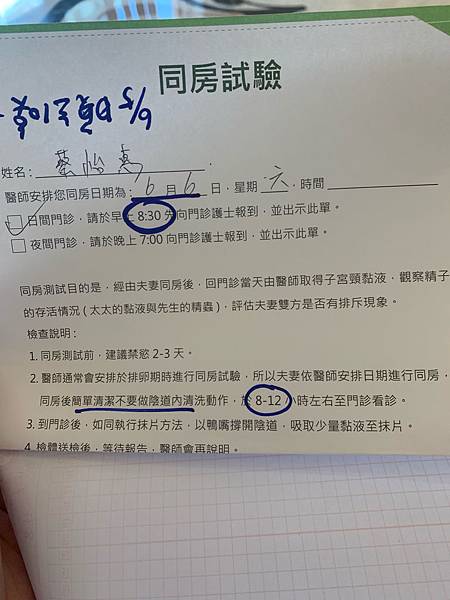 同房試驗
6/5
姓名：蔡怡
醫師安排您同房日期為：6月6日，星期六，時間
日間門診，請於早上8:30先向門診護士報到，並出示此單。
夜間門診，請於晚上7:00向門診護士報到，並出示此單。
同房測試目的是，經由夫妻同房後，回門診當天由醫師取得子宮頸黏液，觀察精子
的存活情況(太太的黏液與先生的精蟲)，評估夫妻雙方是否有排斥現象。
檢查說明：
1. 同房測試前，建議禁慾2-3天。
2. 醫師通常會安排於排卵期時進行同房試驗，所以夫妻依醫師安排日期進行同房，
同房後簡單清潔不要做陰道內清洗動作，於8-12小時左右至門診看診。
3. 到門診後，如同執行抹片方法，以鴨嘴撐開陰道，吸取少量黏液至抹片。
4. 檢體送檢後，等待報告，醫師會再說明。